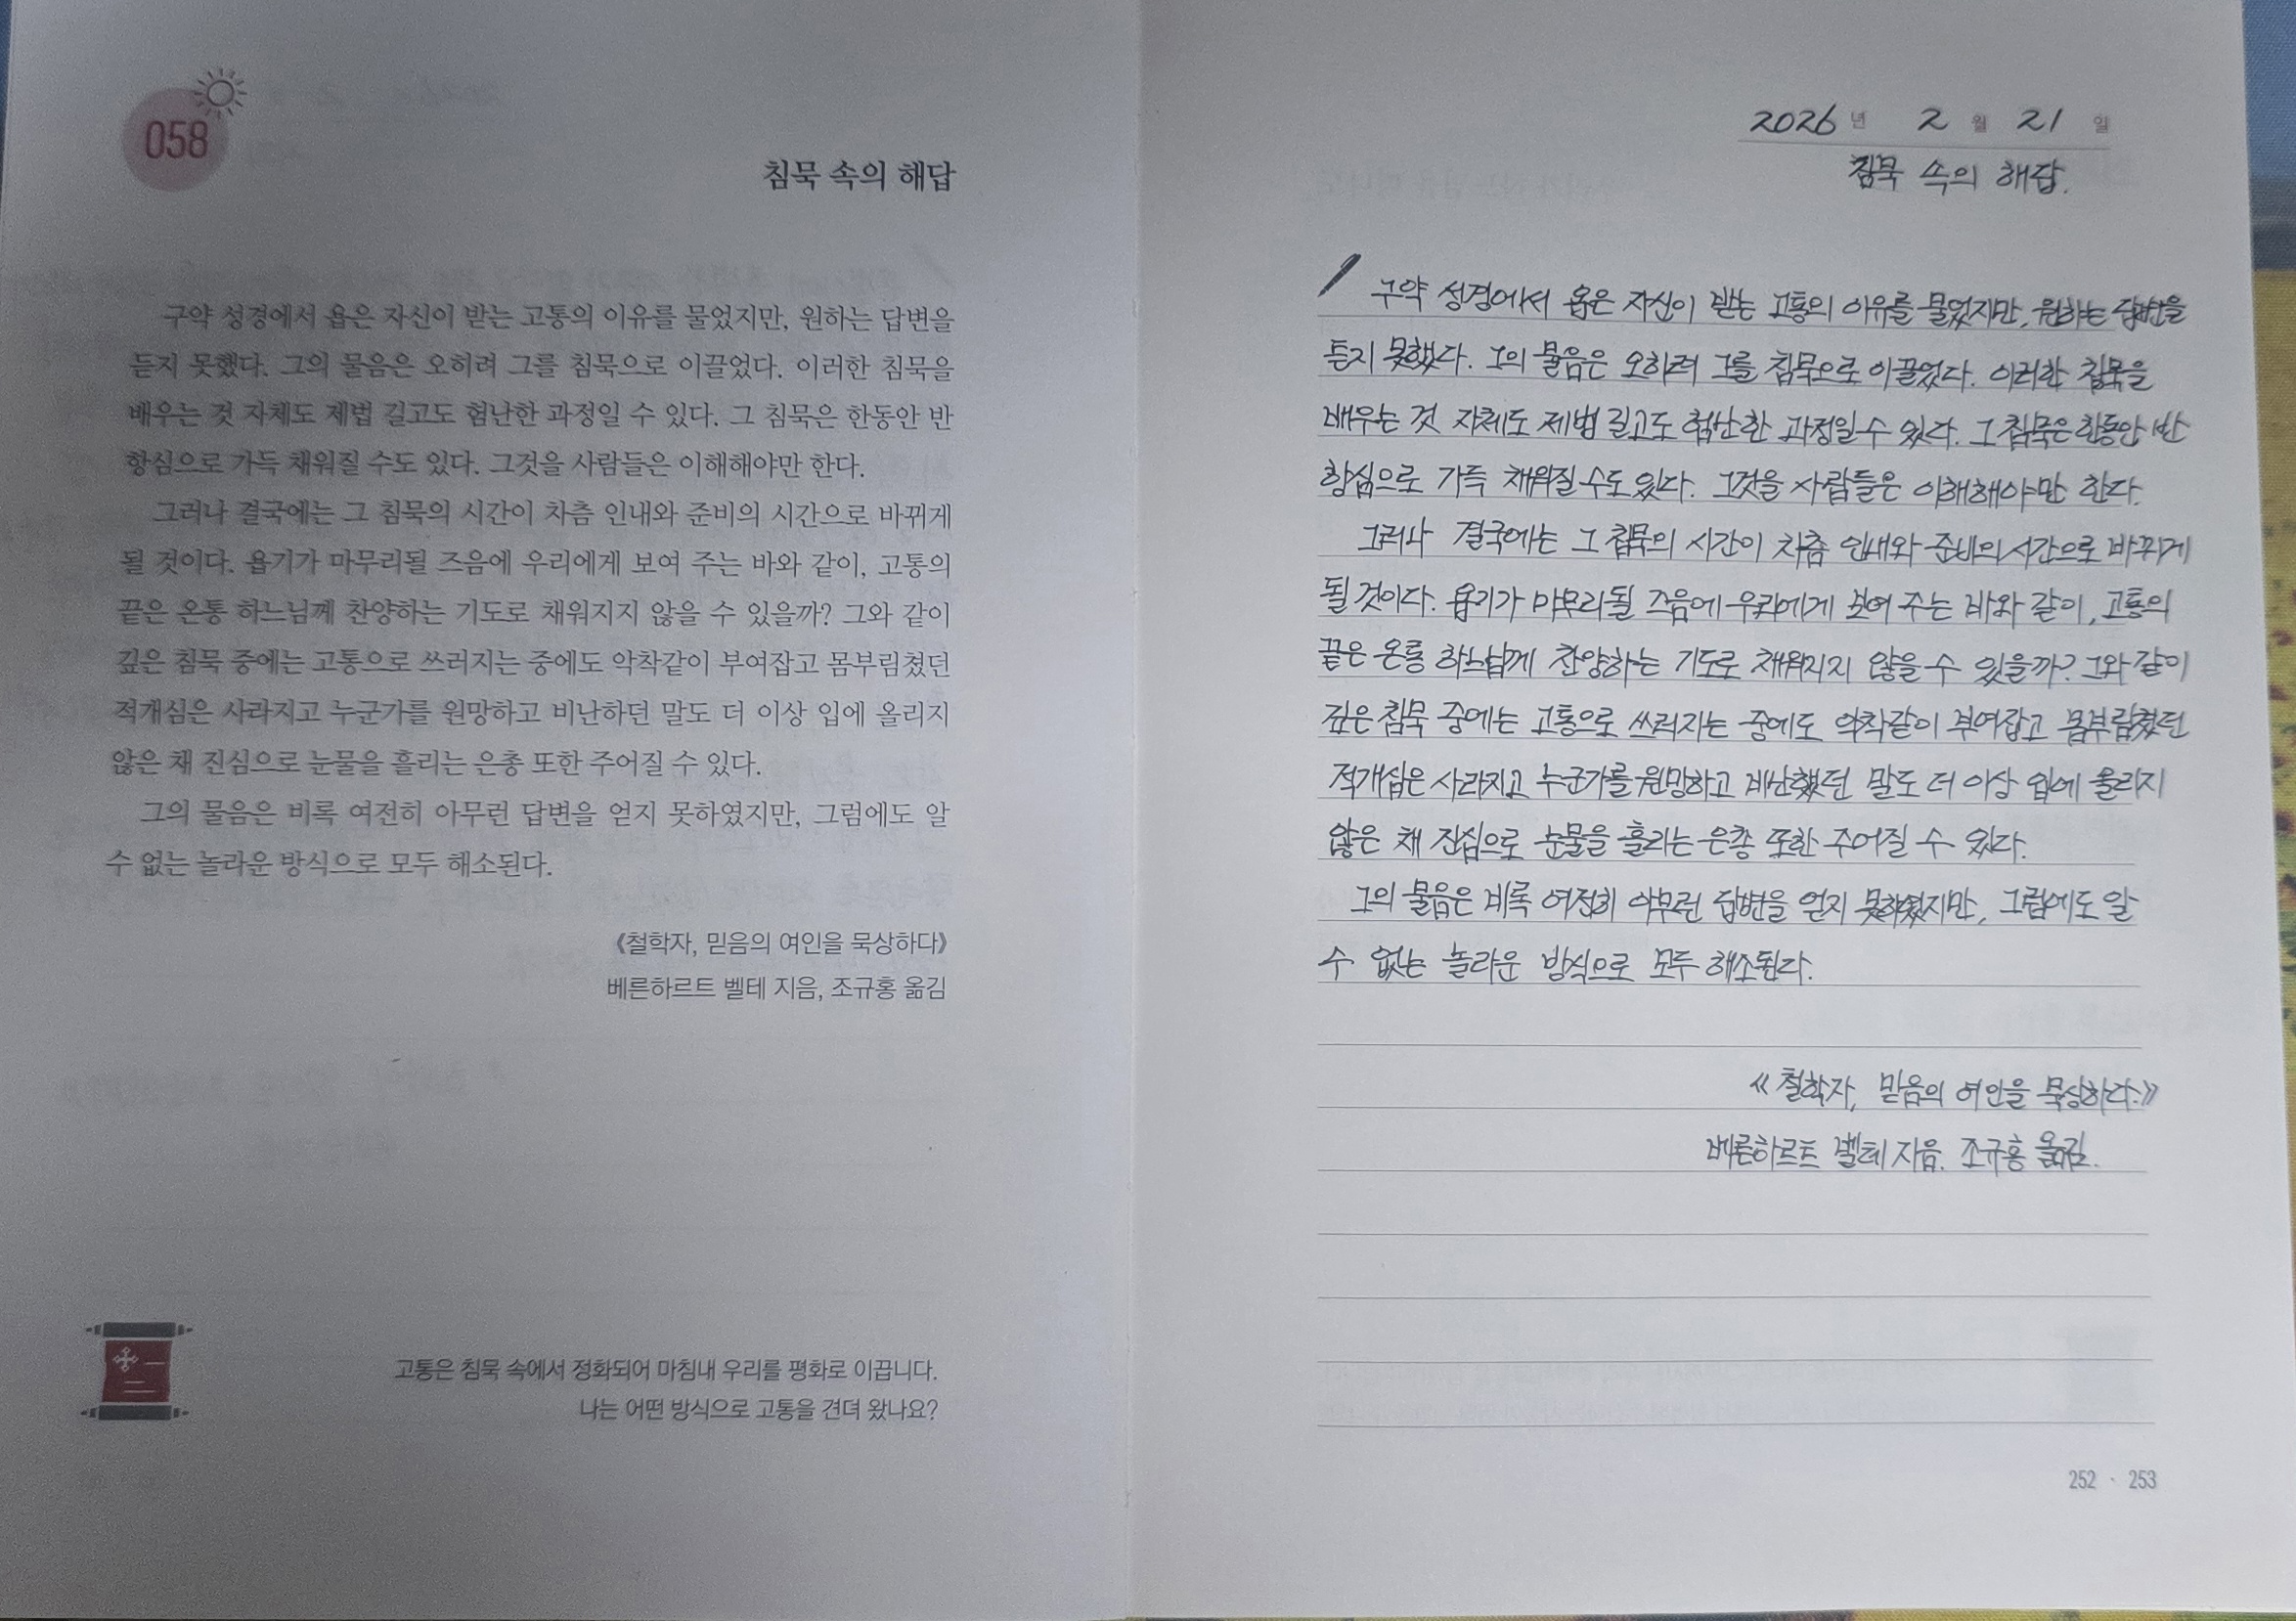 058
침묵 속의 해답
구약 성경에서 욥은 자신이 받는 고통의 이유를 물었지만, 원하는 답변을
듣지 못했다. 그의 물음은 오히려 그를 침묵으로 이끌었다. 이러한 침묵을
배우는 것 자체도 제법 길고도 험난한 과정일 수 있다. 그 침묵은 한동안 반
항심으로 가득 채워질 수도 있다. 그것을 사람들은 이해해야만 한다.
그러나 결국에는 그 침묵의 시간이 차츰 인내와 준비의 시간으로 바뀌게
될 것이다. 욥기가 마무리될 즈음에 우리에게 보여 주는 바와 같이, 고통의
끝은 온통 하느님께 찬양하는 기도로 채워지지 않을 수 있을까? 그와 같이
깊은 침묵 중에는 고통으로 쓰러지는 중에도 악착같이 부여잡고 몸부림쳤던
적개심은 사라지고 누군가를 원망하고 비난하던 말도 더 이상 입에 올리지
않은 채 진심으로 눈물을 흘리는 은총 또한 주어질 수 있다.
그의 물음은 비록 여전히 아무런 답변을 얻지 못하였지만, 그럼에도 알
수 없는 놀라운 방식으로 모두 해소된다.
《철학자, 믿음의 여인을 묵상하다》
베른하르트 벨테 지음, 조규홍 옮김
고통은 침묵 속에서 정화되어 마침내 우리를 평화로 이끕니다.
나는 어떤 방식으로 고통을 견뎌 왔나요?
2026년 2월 21일
침묵 속의 해답.
구약 성경에서 욥은 자신이 받는 고통의 이유를 물었지만, 원하는 답변을
듣지 못했다. 그의 물음은 오히려 그를 침묵으로 이끌었다. 이러한 침묵을
배우는 것 자체도 제법 길고도 험난한 과정일 수 있다. 그 침묵은 한동안 반
항심으로 가득 채워질 수도 있다. 그것을 사람들은 이해해야만 한다.
그러나 결국에는 그 침묵의 시간이 차츰 인내와 준비의 시간으로 바뀌게
될 것이다. 욥기가 마무리될 즈음에 우리에게 보여 주는 바와 같이, 고통의
끝은 온통 하느님께 찬양하는 기도로 채워지지 않을 수 있을까? 그와 같이
깊은 침묵 중에는 고통으로 쓰러지는 중에도 악착같이 부여잡고 몸부림쳤던
적개심은 사라지고 누군가를 원망하고 비난했던 말도 더 이상 입에 올리지
않은 채 진심으로 눈물을 흘리는 은총 또한 주어질 수 있다.
그의 물음은 비록 여전히 아무런 답변을 얻지 못하였지만, 그럼에도 알
수 없는 놀라운 방식으로 모두 해소된다.
《철학자, 믿음의 여인을 묵상하다.》
베른하르트 벨테 지음. 조규홍 옮김.
252 · 253